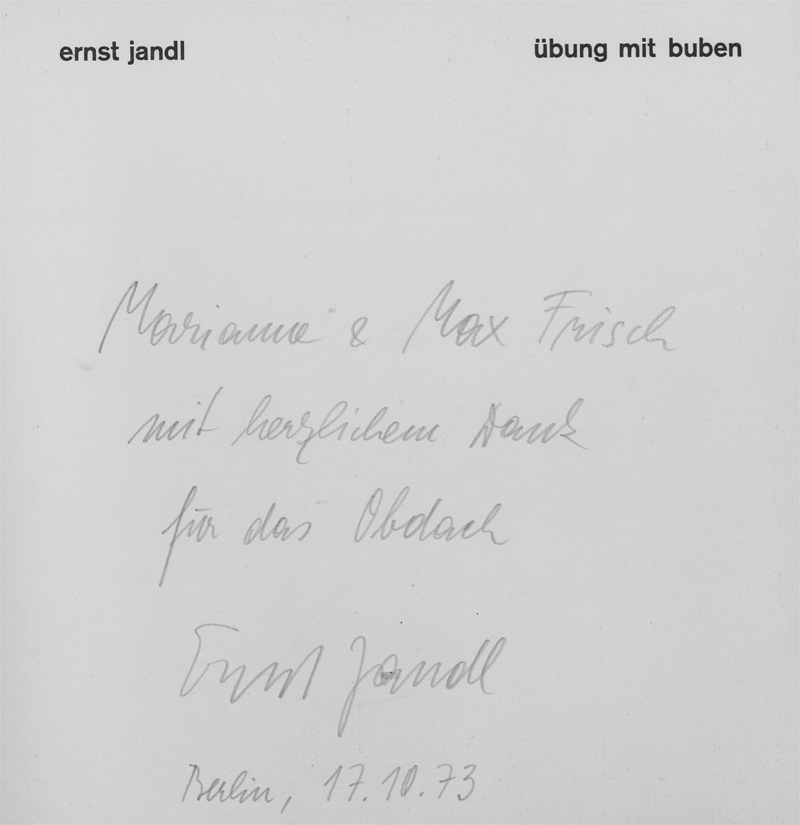 ernst jandl übung mit buben
Marianne & Max Frisch
mit herzlichem Dank
für das Obdach
Ernst Jandl
Berlin, 17.10.73